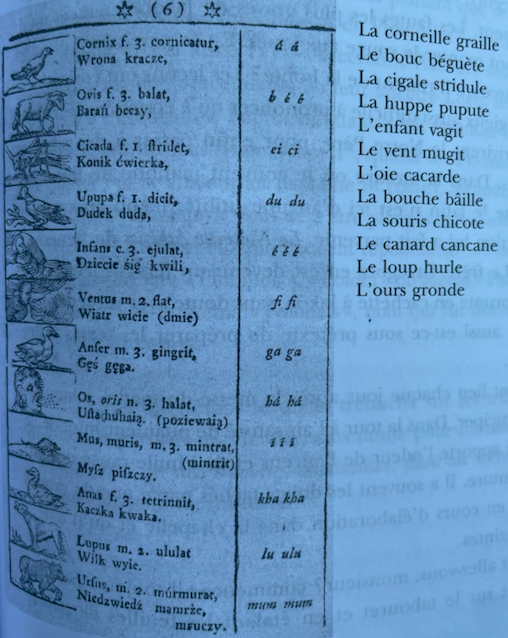 (6)
Cornix f. 3. cornicatur, á á
Wrona kracze,
Ovis f. 3. balat, b é é
Baran beczy,
Cicada f. 1. stridet, ci ci
Konik ćwierka,
Upupa f. 1. dicit, du du
Dudek duda,
Infans c. 3. ejulat, é é é
Dziecie się kwili,
Ventus m. 2. flat, fi fi
Wiatr wieie (dmie)
Anser m. 3. gingrit, ga ga
Gęś gęga.
Os, oris n. 3. halat, há há
Usta huhaią. (poziewaią)
Mus, muris, m. 3. mintrat, í í í
(mintrit)
Mysz piszczy.
Anas f. 3. tetrinnit, kha kha
Kaczka kwaka.
Lupus m. 2. ululat lu ulu
Wilk wyie.
Ursus, m. 2. murmurat, mum mum
Niedzwiedź mamrże,
mruczy.
La corneille graille
Le bouc béguète
La cigale stridule
La huppe pupute
L'enfant vagit
Le vent mugit
L'oie cacarde
La bouche bâille
La souris chicote
Le canard cancane
Le loup hurle
L'ours gronde